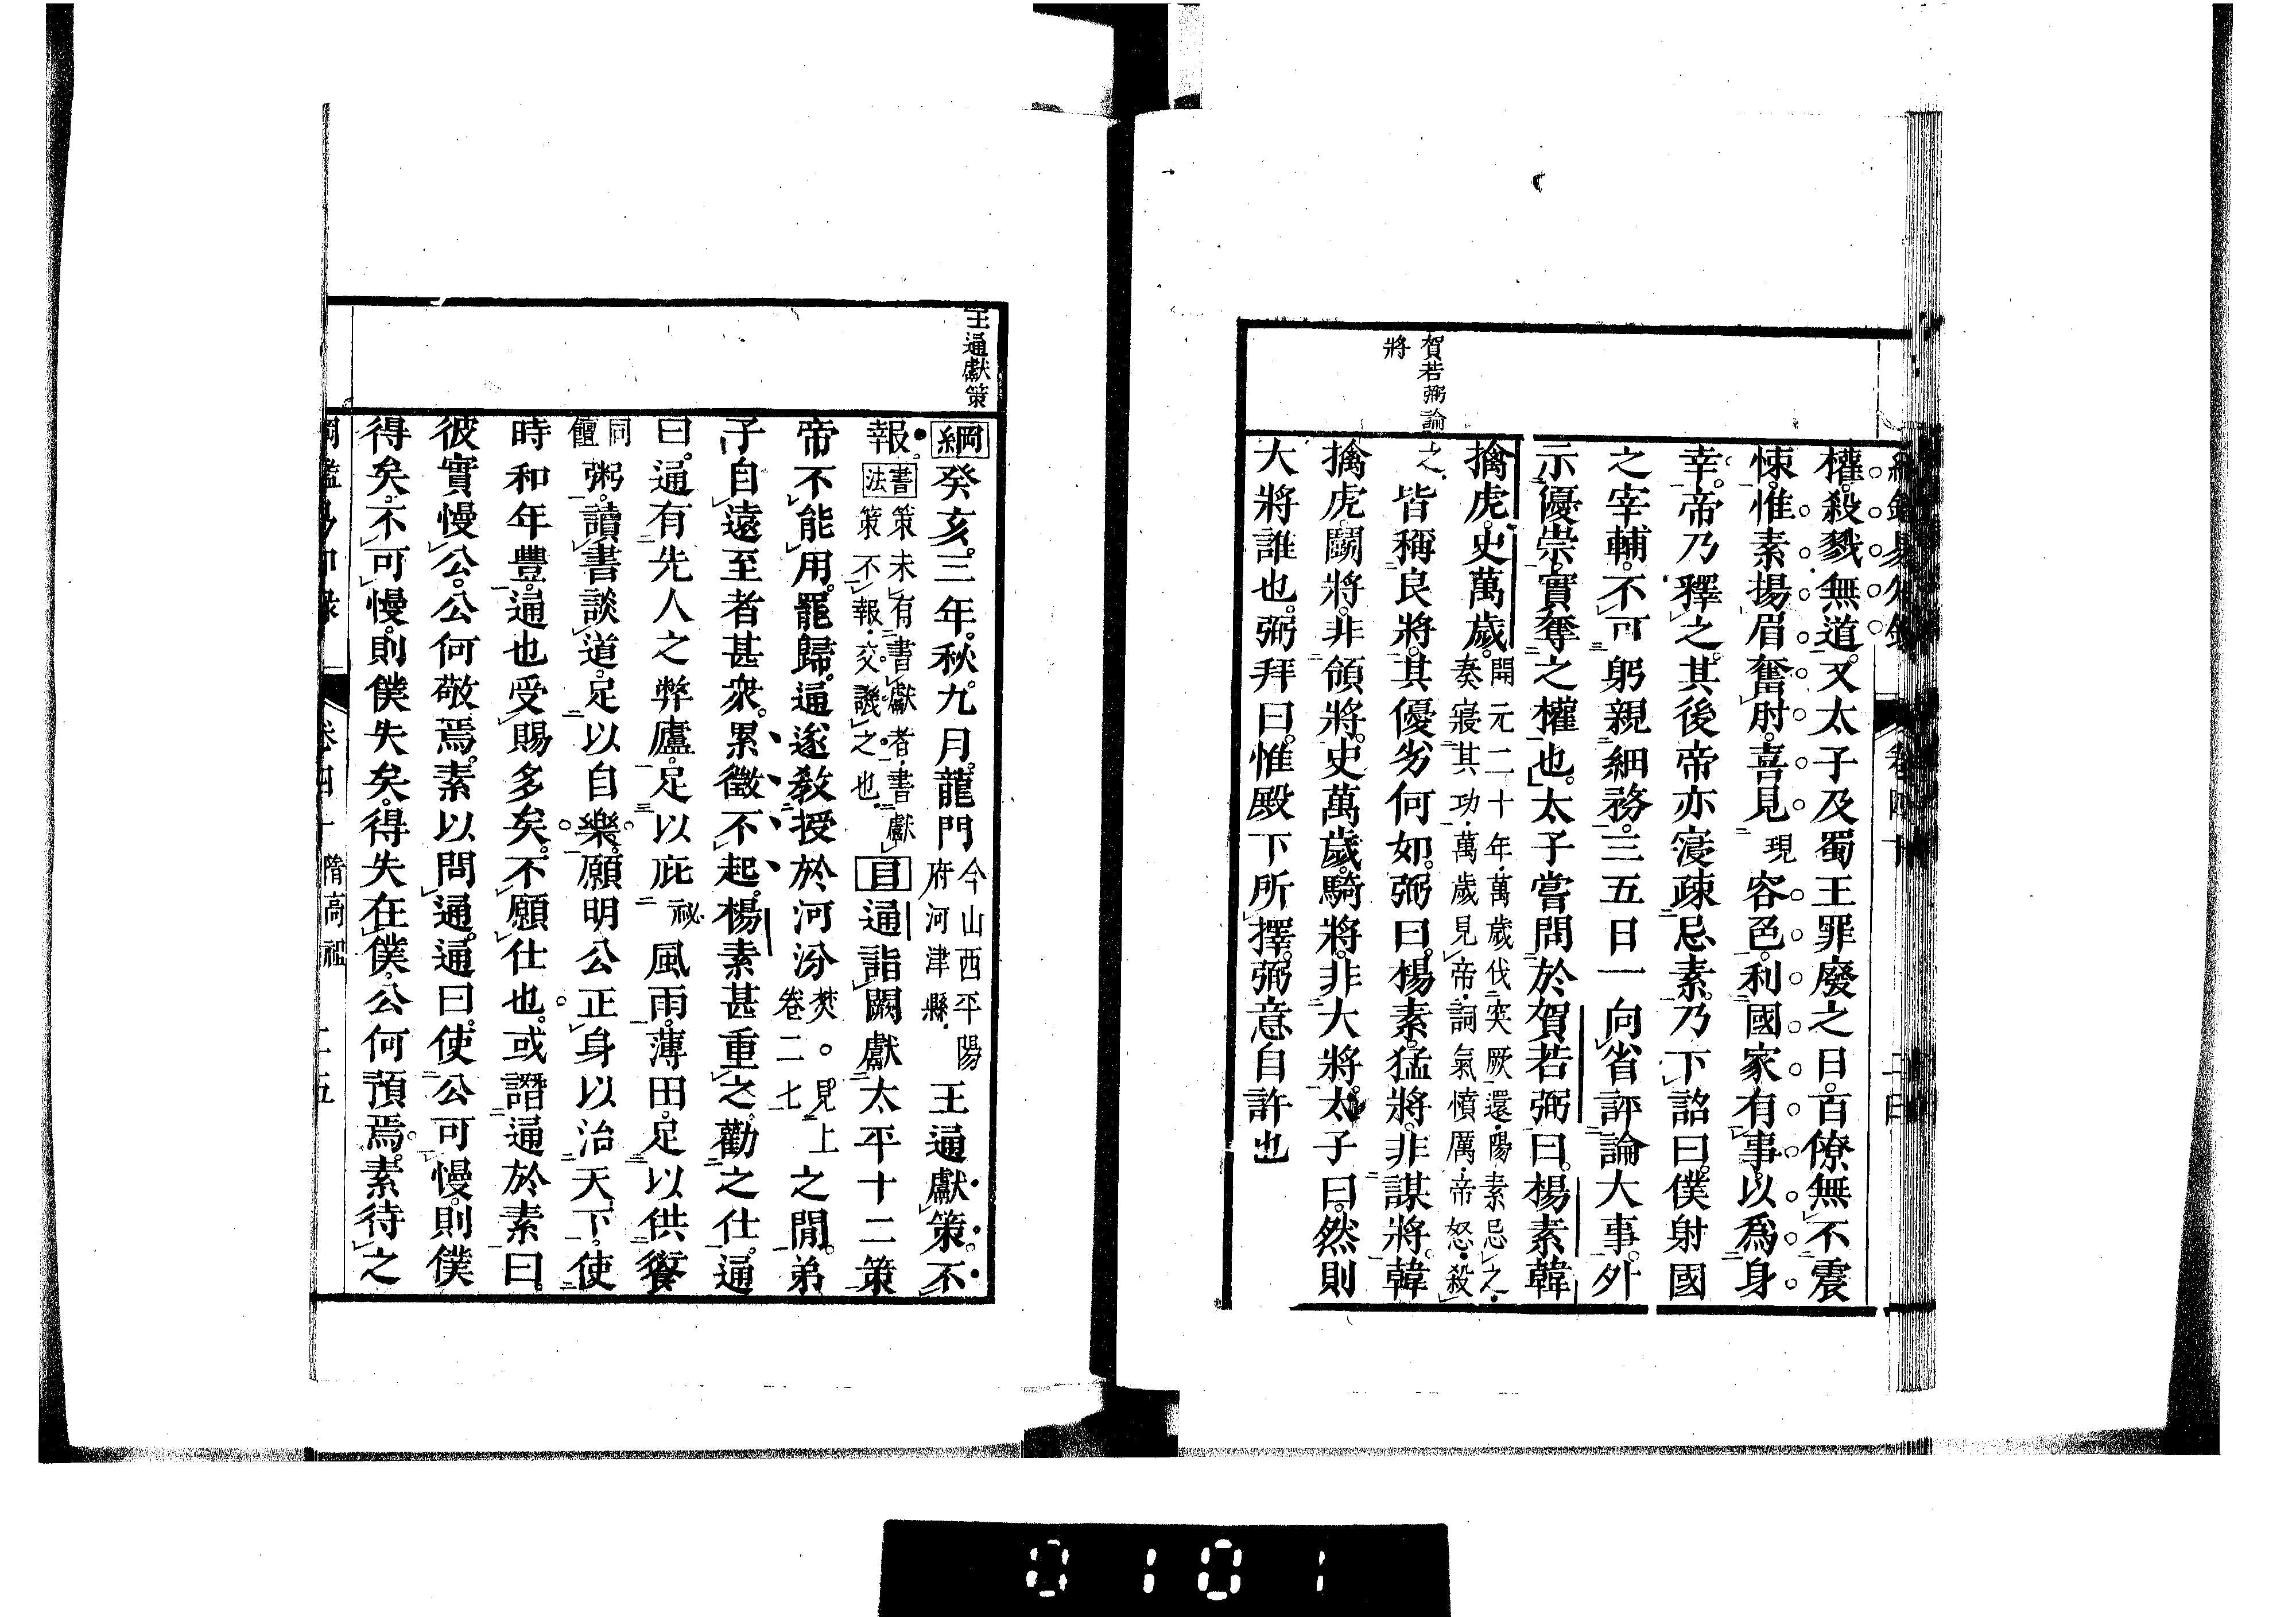 賀若弼論
將
權。殺戮無道。又太子及蜀王罪廢之日。百僚無不震
悚。惟素揚眉奮肘。喜見現容色。利國家有事。以爲身
幸。帝乃釋之。其後帝亦寖疎忌素。乃下詔曰。僕射國
之宰輔。不可躬親細務。三五日一向省評論大事。外
示優崇。實奪之權也。太子嘗問於賀若弼曰。楊素韓
擒虎。史萬歲。開元二十年。萬歲伐突厥還。陽素忌之。
奏寢其功。萬歲見帝。詞氣憤厲。帝怒。殺
之。皆稱良將。其優劣何如。弼曰。楊素。猛將。非謀將。韓
擒虎。鬭將。非領將。史萬歲。騎將。非大將。太子曰。然則
大將誰也。弼拜曰。惟殿下所擇。弼意自許也
卷四十
王通獻策
綱癸亥。三年。秋。九月。龍門今山西平陽
府河津縣。王通獻策。不
報。書法策未有書獻者。書獻
策不報。交譏之也。目通詣闕獻太平十二策
帝不能用。罷歸。通遂敎授於河汾焚。見上
卷二七之閒。弟
子自遠至者甚衆。累徵不起。楊素甚重之。勸之仕。通
曰。通有先人之弊廬。足以庇祕風雨。薄田。足以供餐
同
饘粥。讀書談道。足以自樂。願明公正身以治天下。使
時和年豐。通也受賜多矣。不願仕也。或譖通於素曰。
彼實慢公。公何敬焉。素以問通。通曰。使公可慢。則僕
得矣。不可慢。則僕失矣。得失在僕。公何預焉。素待之
卷四十 隋高祖 二五